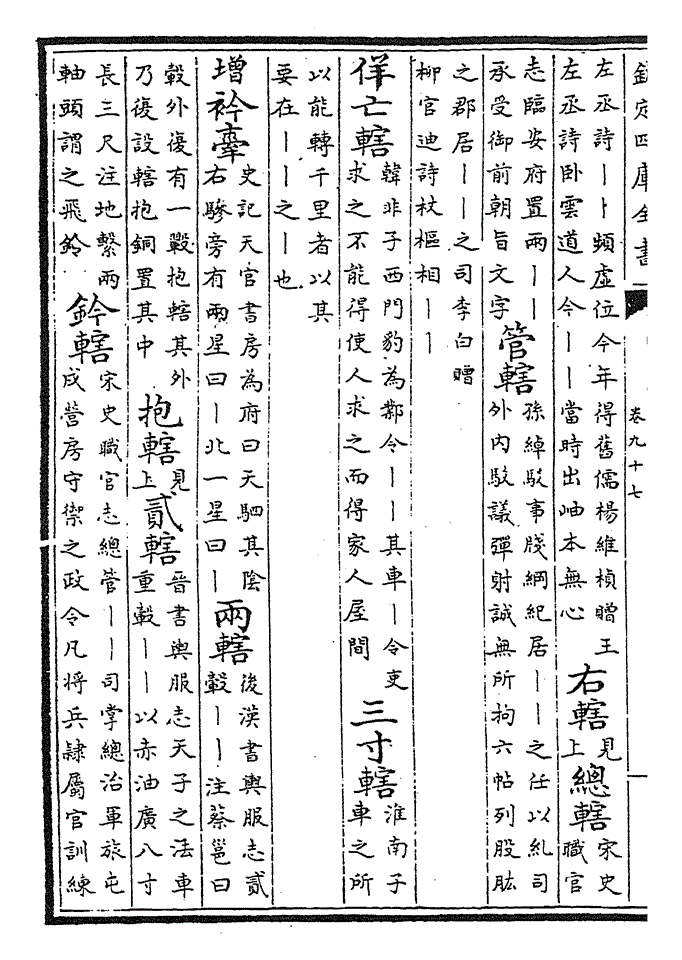 欽定四庫全書 卷九十七
左丞詩丨卜頻虛位今年得舊儒楊維楨贈王
左丞詩卧雲道人今丨丨當時出岫本無心
右轄 見上 總轄 宋史職官
志臨安府置兩丨丨
承受御前朝旨文字
管轄 孫綽駁事牋綱紀居丨丨之任以糺司
外内駁議彈射誠無所拘六帖列股肱
之郡居丨丨之司李白贈
柳官迪詩杖樞相丨丨
佯亡轄 韓非子西門豹為鄴令丨丨其車丨令吏
求之不能得使人求之而得家人屋間
三寸轄 淮南子
車之所
以能轉千里者以其
要在丨丨之丨也
增衿舝 史記天官書房為府曰天駟其陰
右驂旁有兩星曰丨北一星曰丨
兩轄 後漢書輿服志貳
轂丨丨注蔡邕曰
轂外復有一轂抱轄其外
乃復設轄抱銅置其中
抱轄 見上 貳轄 晉書輿服志天子之法車
重轂丨丨以赤油廣八寸
長三尺注地繫兩
軸頭謂之飛鈴
鈐轄 宋史職官志總管丨丨司掌總治軍旅屯
戍營房守禦之政令凡將兵隸屬官訓練